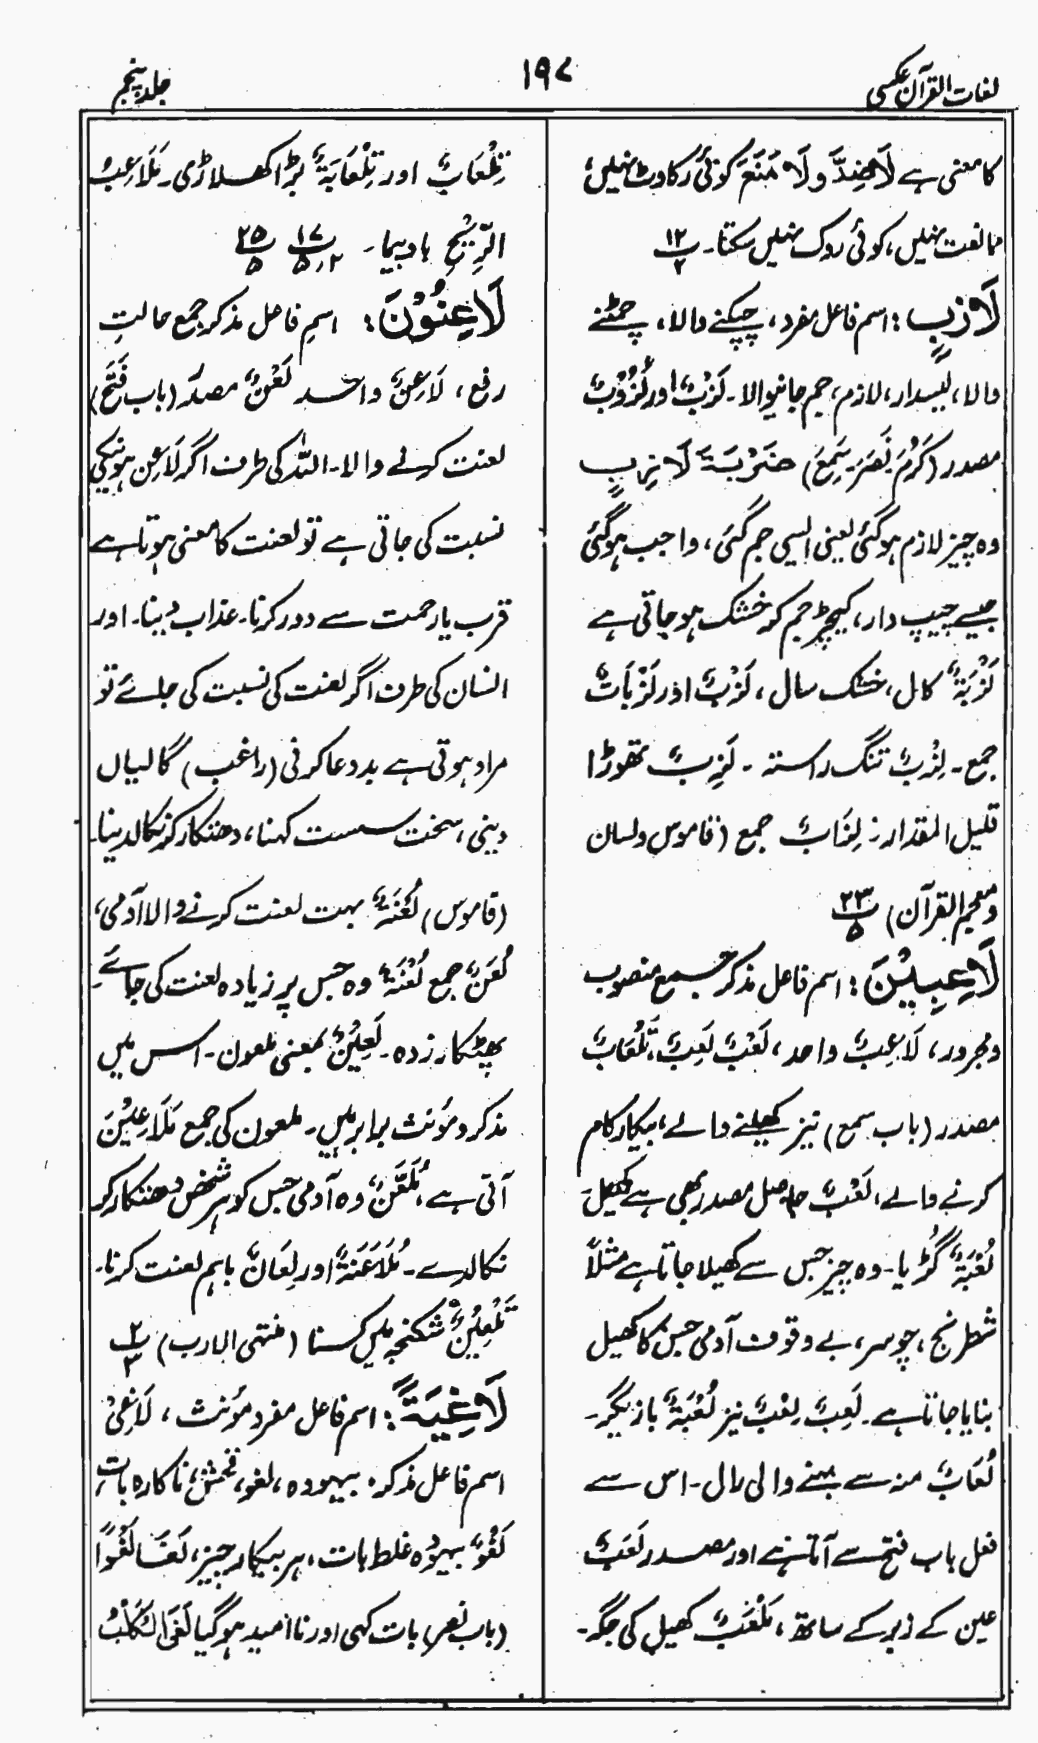 لغات القرآن عکسی
۱۹۷
جلد پنجم
کا معنی ہے لَا ضِدَّ وَلَا مَنَعَ کوئی رکاوٹ نہیں،
ممانعت نہیں، کوئی روک نہیں سکتا۔ ۱۲/۲
لَازِبٍ: اسم فاعل مفرد، چپکنے والا، چمٹنے
والا، لیسدار، لازم، جم جانیوالا۔ لَزْبٌ اور لُزُوْبٌ
مصدر (کَرُمَ نَصَرَ سَمِعَ) ضَرْبَةَ لَازِبٍ
وہ چیز لازم ہوگئی یعنی ایسی جم گئی، واجب ہوگئی
جیسے چیپ دار، کیچڑ جم کر خشک ہو جاتی ہے
لَزْبَةٌ کال، خشک سال، لَزْبٌ اور لَزْبَاتٌ
جمع۔ لِزْبٌ تنگ راستہ۔ لَزِبٌ تھوڑا
قلیل المقدار۔ لِزَابٌ جمع (قاموس ولسان
ومعجم القرآن) ۲۳/۵
لَاعِبِیْنَ: اسم فاعل مذکر جمع منصوب
ومجرور، لَاعِبٌ واحد، لَعْبٌ لَعِبٌ، تَلْعَابٌ
مصدر (باب سمع) نیز کھیلنے والے، بیکار کام
کرنے والے، لَعْبٌ حاصل مصدر بھی ہے کھیل،
لُعْبَةٌ گڑیا۔ وہ چیز جس سے کھیلا جاتا ہے مثلاً
شطرنج، چوسر، بے وقوف آدمی جس کا کھیل
بنایا جاتا ہے۔ لَعِبٌ لِعْبٌ نیز لُعَبَةٌ بازیگر۔
لُعَابٌ منہ سے بہنے والی رال۔ اس سے
فعل باب فتح سے آتا ہے اور مصدر لَعْبٌ
عین کے زبر کے ساتھ، مَلْعَبٌ کھیل کی جگہ۔
تِلْعَابٌ اور تِلْعَابَةٌ بڑا کھلاڑی۔ مَلَاعِبُ
الرِّیْحِ بادپیما۔ ۱۷/۲،۵ ۲۵/۵
لَاعِنُوْنَ: اسم فاعل مذکر جمع حالتِ
رفع، لَاعِنٌ واحد لَعْنٌ مصدر (باب فَتَحَ)
لعنت کرنے والا۔ اللہ کی طرف اگر لاعن ہونیکی
نسبت کی جاتی ہے تو لعنت کا معنی ہوتا ہے
قرب یا رحمت سے دور کرنا۔ عذاب دینا۔ اور
انسان کی طرف اگر لعنت کی نسبت کی جائے تو
مراد ہوتی ہے بددعا کرنی (راغب) گالیاں
دینی، سخت سست کہنا، دھتکار کر نکالدینا۔
(قاموس) لُعَنَةٌ بہت لعنت کرنے والا آدمی،
لُعَنٌ جمع لُعْنَةٌ وہ جس پر زیادہ لعنت کی جائے۔
پھٹکار زدہ۔ لَعِیْنٌ بمعنی ملعون۔ اس میں
مذکر ومؤنث برابر ہیں۔ ملعون کی جمع مَلَاعِیْنَ
آتی ہے، مُلَعَّنٌ وہ آدمی جس کو ہر شخص دھتکار کر
نکالدے۔ مُلَاعَنَةٌ اور لِعَانٌ باہم لعنت کرنا۔
تَلْعِیْنٌ شکنجہ میں کسنا (منتہی الارب) ۲/۳
لَاغِیَةً: اسم فاعل مفرد مؤنث، لَاغِیْ
اسم فاعل مذکر، بیہودہ، لغو، فحش، ناکارہ بات
لَغْوٌ بیہودہ غلط بات، ہر بیکار چیز، لَغَا لَغْوًا
(باب نصر) بات کہی اور ناامید ہوگیا لَغَی الْکَلْبُ